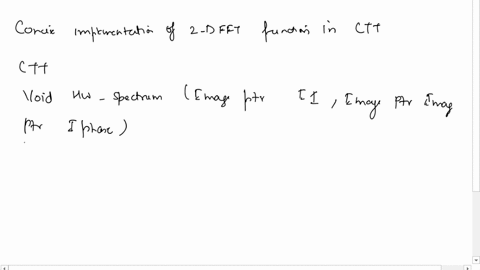 Concise implementation of 2-D FFT function in C++
C++
Void HW-Spectrum (Image ptr I1, Image ptr Imag
ptr Iphase)